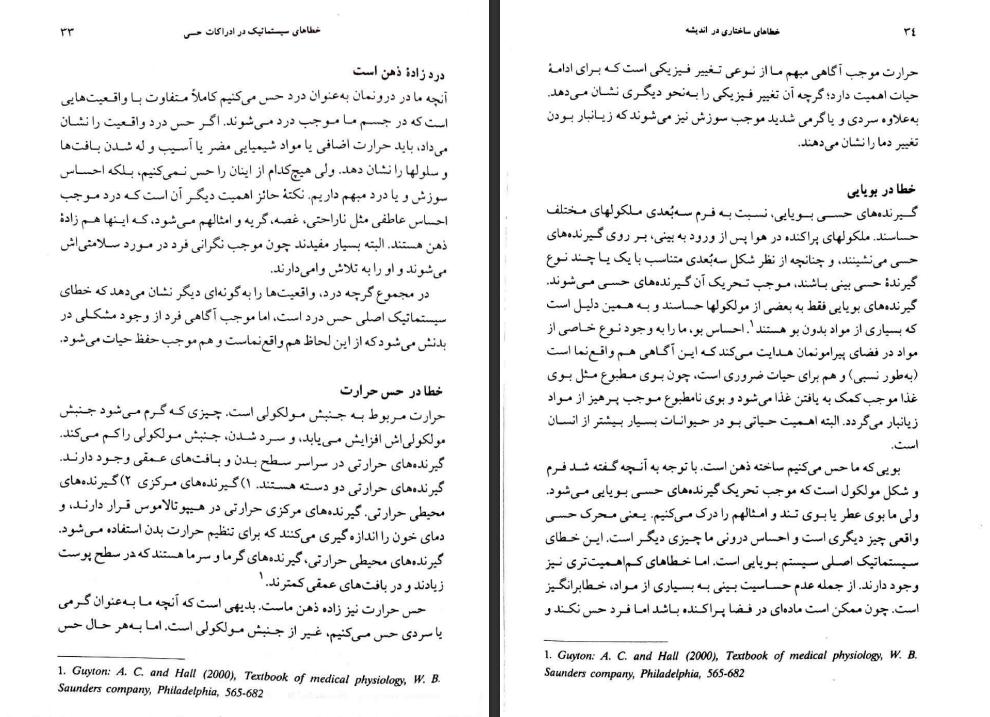 خطاهای سیستماتیک در ادراکات حسی ۳۳
درد زادهٔ ذهن است
آنچه ما در درونمان به‌عنوان درد حس می‌کنیم کاملاً متفاوت با واقعیت‌هایی
است که در جسم ما موجب درد می‌شوند. اگر حس درد واقعیت را نشان
می‌داد، باید حرارت اضافی یا مواد شیمیایی مضر یا آسیب و له شدن بافت‌ها
و سلولها را نشان دهد. ولی هیچ‌کدام از اینان را حس نمی‌کنیم، بلکه احساس
سوزش و یا درد مبهم داریم. نکتهٔ حائز اهمیت دیگر آن است که درد موجب
احساس عاطفی مثل ناراحتی، غصه، گریه و امثالهم می‌شود، که اینها هم زادهٔ
ذهن هستند. البته بسیار مفیدند چون موجب نگرانی فرد در مورد سلامتی‌اش
می‌شوند و او را به تلاش وامی‌دارند.
در مجموع گرچه درد، واقعیت‌ها را به‌گونه‌ای دیگر نشان می‌دهد که خطای
سیستماتیک اصلی حس درد است، اما موجب آگاهی فرد از وجود مشکلی در
بدنش می‌شود که از این لحاظ هم واقع‌نماست و هم موجب حفظ حیات می‌شود.
خطا در حس حرارت
حرارت مربوط به جنبش مولکولی است. چیزی که گرم می‌شود جنبش
مولکولی‌اش افزایش می‌یابد، و سرد شدن، جنبش مولکولی را کم می‌کند.
گیرنده‌های حرارتی در سراسر سطح بدن و بافت‌های عمقی وجود دارند.
گیرنده‌های حرارتی دو دسته هستند. ۱) گیرنده‌های مرکزی ۲) گیرنده‌های
محیطی حرارتی. گیرنده‌های مرکزی حرارتی در هیپوتالاموس قرار دارند، و
دمای خون را اندازه‌گیری می‌کنند که برای تنظیم حرارت بدن استفاده می‌شود.
گیرنده‌های محیطی حرارتی، گیرنده‌های گرما و سرما هستند که در سطح پوست
زیادند و در بافت‌های عمقی کمترند.۱
حس حرارت نیز زاده ذهن ماست. بدیهی است که آنچه ما به‌عنوان گرمی
یا سردی حس می‌کنیم، غیر از جنبش مولکولی است. اما به‌هر حال حس
1. Guyton: A. C. and Hall (2000), Textbook of medical physiology, W. B.
Saunders company, Philadelphia, 565-682
۳۴ خطاهای ساختاری در اندیشه
حرارت موجب آگاهی مبهم ما از نوعی تغییر فیزیکی است که برای ادامهٔ
حیات اهمیت دارد؛ گرچه آن تغییر فیزیکی را به‌نحو دیگری نشان می‌دهد.
به‌علاوه سردی و یا گرمی شدید موجب سوزش نیز می‌شوند که زیانبار بودن
تغییر دما را نشان می‌دهند.
خطا در بویایی
گیرنده‌های حسی بویایی، نسبت به فرم سه‌بُعدی ملکولهای مختلف
حساسند. ملکولهای پراکنده در هوا پس از ورود به بینی، بر روی گیرنده‌های
حسی می‌نشینند، و چنانچه از نظر شکل سه‌بُعدی متناسب با یک یا چند نوع
گیرندهٔ حسی بینی باشند، موجب تحریک آن گیرنده‌های حسی می‌شوند.
گیرنده‌های بویایی فقط به بعضی از مولکولها حساسند و به همین دلیل است
که بسیاری از مواد بدون بو هستند.۱ احساس بو، ما را به وجود نوع خاصی از
مواد در فضای پیرامونمان هدایت می‌کند که این آگاهی هم واقع‌نما است
(به‌طور نسبی) و هم برای حیات ضروری است، چون بوی مطبوع مثل بوی
غذا موجب کمک به یافتن غذا می‌شود و بوی نامطبوع موجب پرهیز از مواد
زیانبار می‌گردد. البته اهمیت حیاتی بو در حیوانات بسیار بیشتر از انسان
است.
بویی که ما حس می‌کنیم ساخته ذهن است. با توجه به آنچه گفته شد فرم
و شکل مولکول است که موجب تحریک گیرنده‌های حسی بویایی می‌شود.
ولی ما بوی عطر یا بوی تند و امثالهم را درک می‌کنیم. یعنی محرک حسی
واقعی چیز دیگری است و احساس درونی ما چیزی دیگر است. این خطای
سیستماتیک اصلی سیستم بویایی است. اما خطاهای کم‌اهمیت‌تری نیز
وجود دارند. از جمله عدم حساسیت بینی به بسیاری از مواد، خطابرانگیز
است. چون ممکن است ماده‌ای در فضا پراکنده باشد اما فرد حس نکند و
1. Guyton: A. C. and Hall (2000), Textbook of medical physiology, W. B.
Saunders company, Philadelphia, 565-682